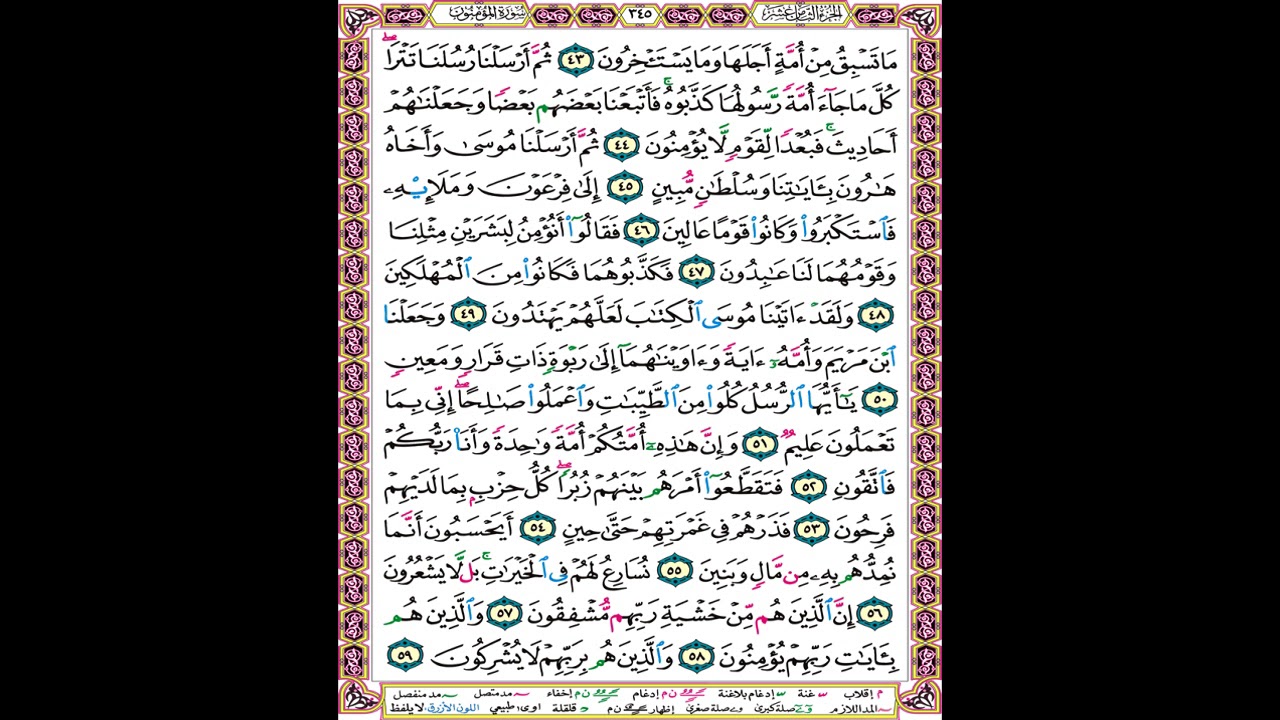 سورة المؤمنون ٣٤٥ الجزء الثامن عشر
مَا تَسْبِقُ مِنْ أُمَّةٍ أَجَلَهَا وَمَا يَسْتَـْٔخِرُونَ ٤٣ ثُمَّ أَرْسَلْنَا رُسُلَنَا تَتْرَاۖ
كُلَّ مَا جَآءَ أُمَّةً رَّسُولُهَا كَذَّبُوهُۚ فَأَتْبَعْنَا بَعْضَهُم بَعْضًا وَجَعَلْنَاهُمْ
أَحَادِيثَۚ فَبُعْدًا لِّقَوْمٍ لَّا يُؤْمِنُونَ ٤٤ ثُمَّ أَرْسَلْنَا مُوسَىٰ وَأَخَاهُ
هَارُونَ بِـَٔايَاتِنَا وَسُلْطَانٍ مُّبِينٍ ٤٥ إِلَىٰ فِرْعَوْنَ وَمَلَإِي۟هِۦ
فَٱسْتَكْبَرُوا۟ وَكَانُوا۟ قَوْمًا عَالِينَ ٤٦ فَقَالُوٓا۟ أَنُؤْمِنُ لِبَشَرَيْنِ مِثْلِنَا
وَقَوْمُهُمَا لَنَا عَابِدُونَ ٤٧ فَكَذَّبُوهُمَا فَكَانُوا۟ مِنَ ٱلْمُهْلَكِينَ
٤٨ وَلَقَدْ ءَاتَيْنَا مُوسَى ٱلْكِتَابَ لَعَلَّهُمْ يَهْتَدُونَ ٤٩ وَجَعَلْنَا
ٱبْنَ مَرْيَمَ وَأُمَّهُۥٓ ءَايَةً وَءَاوَيْنَاهُمَآ إِلَىٰ رَبْوَةٍ ذَاتِ قَرَارٍ وَمَعِينٍ
٥٠ يَـٰٓأَيُّهَا ٱلرُّسُلُ كُلُوا۟ مِنَ ٱلطَّيِّبَاتِ وَٱعْمَلُوا۟ صَالِحًاۖ إِنِّي بِمَا
تَعْمَلُونَ عَلِيمٌ ٥١ وَإِنَّ هَـٰذِهِۦٓ أُمَّتُكُمْ أُمَّةً وَاحِدَةً وَأَنَا۠ رَبُّكُمْ
فَٱتَّقُونِ ٥٢ فَتَقَطَّعُوٓا۟ أَمْرَهُم بَيْنَهُمْ زُبُرًاۖ كُلُّ حِزْبٍ بِمَا لَدَيْهِمْ
فَرِحُونَ ٥٣ فَذَرْهُمْ فِي غَمْرَتِهِمْ حَتَّىٰ حِينٍ ٥٤ أَيَحْسَبُونَ أَنَّمَا
نُمِدُّهُم بِهِۦ مِن مَّالٍ وَبَنِينَ ٥٥ نُسَارِعُ لَهُمْ فِي ٱلْخَيْرَاتِۚ بَل لَّا يَشْعُرُونَ
٥٦ إِنَّ ٱلَّذِينَ هُم مِّنْ خَشْيَةِ رَبِّهِم مُّشْفِقُونَ ٥٧ وَٱلَّذِينَ هُم
بِـَٔايَاتِ رَبِّهِمْ يُؤْمِنُونَ ٥٨ وَٱلَّذِينَ هُم بِرَبِّهِمْ لَا يُشْرِكُونَ ٥٩
م إقلاب غنة إدغام بلاغنة ن م إدغام ن م إخفاء مد متصل مد منفصل
المد اللازم صلة كبرى صلة صغرى إظهار ن م قلقلة اوى: طبيعي اللون الأزرق: لا يلفظ